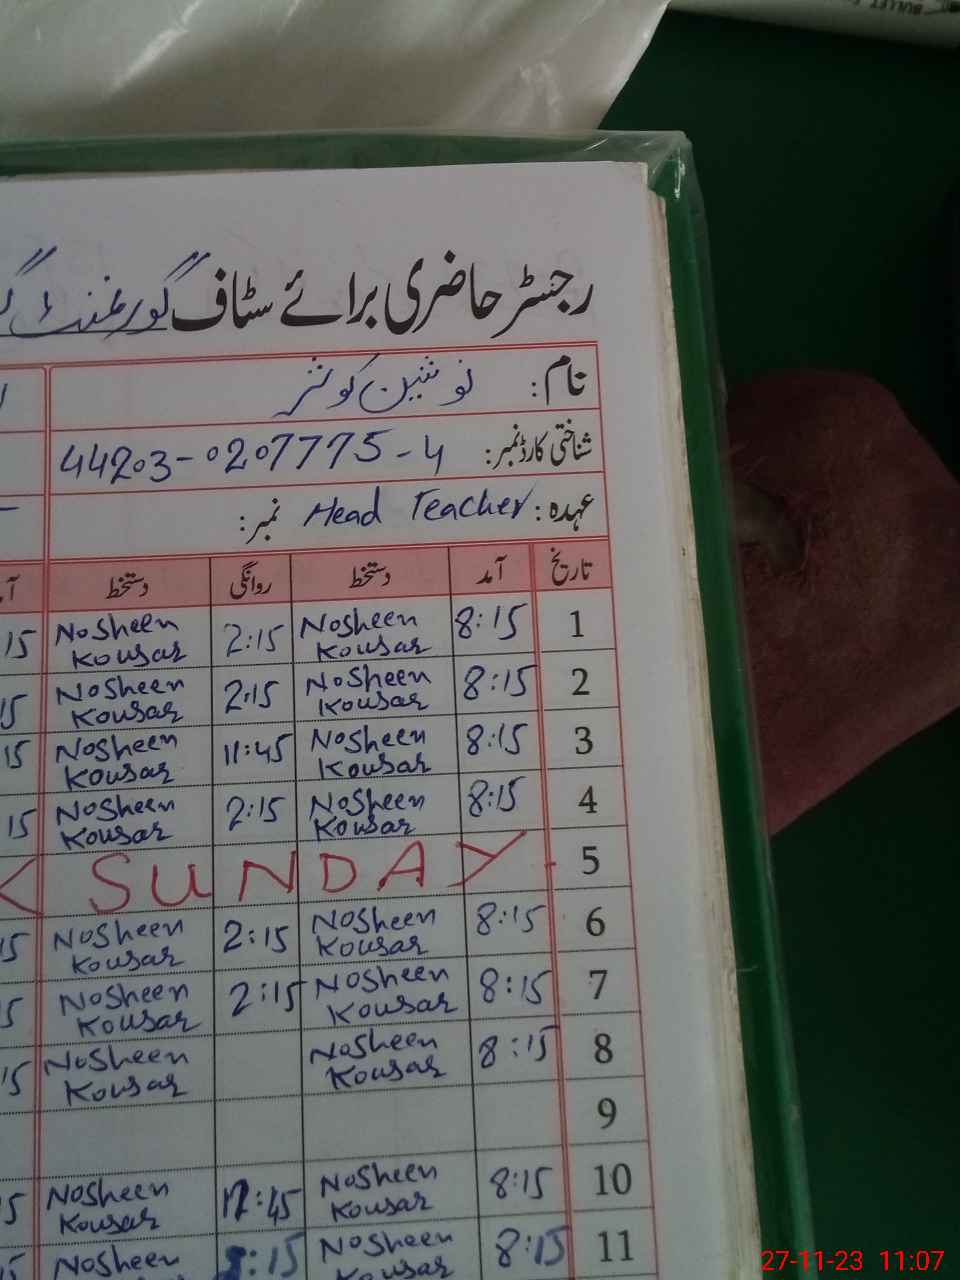 BULLET
رجسٹر حاضری برائے سٹاف گورنمنٹ
نام: نوشین کوثر
شناختی کارڈ نمبر: 44203-0207775-4
عہدہ: Head Teacher نمبر:
تاریخ آمد دستخط روانگی دستخط
1 8:15 Nosheen Kousar 2:15 Nosheen Kousar 15
2 8:15 Nosheen Kousar 2:15 Nosheen Kousar 15
3 8:15 Nosheen Kousar 11:45 Nosheen Kousar 15
4 8:15 Nosheen Kousar 2:15 Nosheen Kousar 15
5 SUNDAY
6 8:15 Nosheen Kousar 2:15 Nosheen Kousar 15
7 8:15 Nosheen Kousar 2:15 Nosheen Kousar 15
8 8:15 Nosheen Kousar Nosheen Kousar 15
9
10 8:15 Nosheen Kousar 12:45 Nosheen Kousar 15
11 8:15 Nosheen Kousar :15 Nosheen 15
27-11-23 11:07